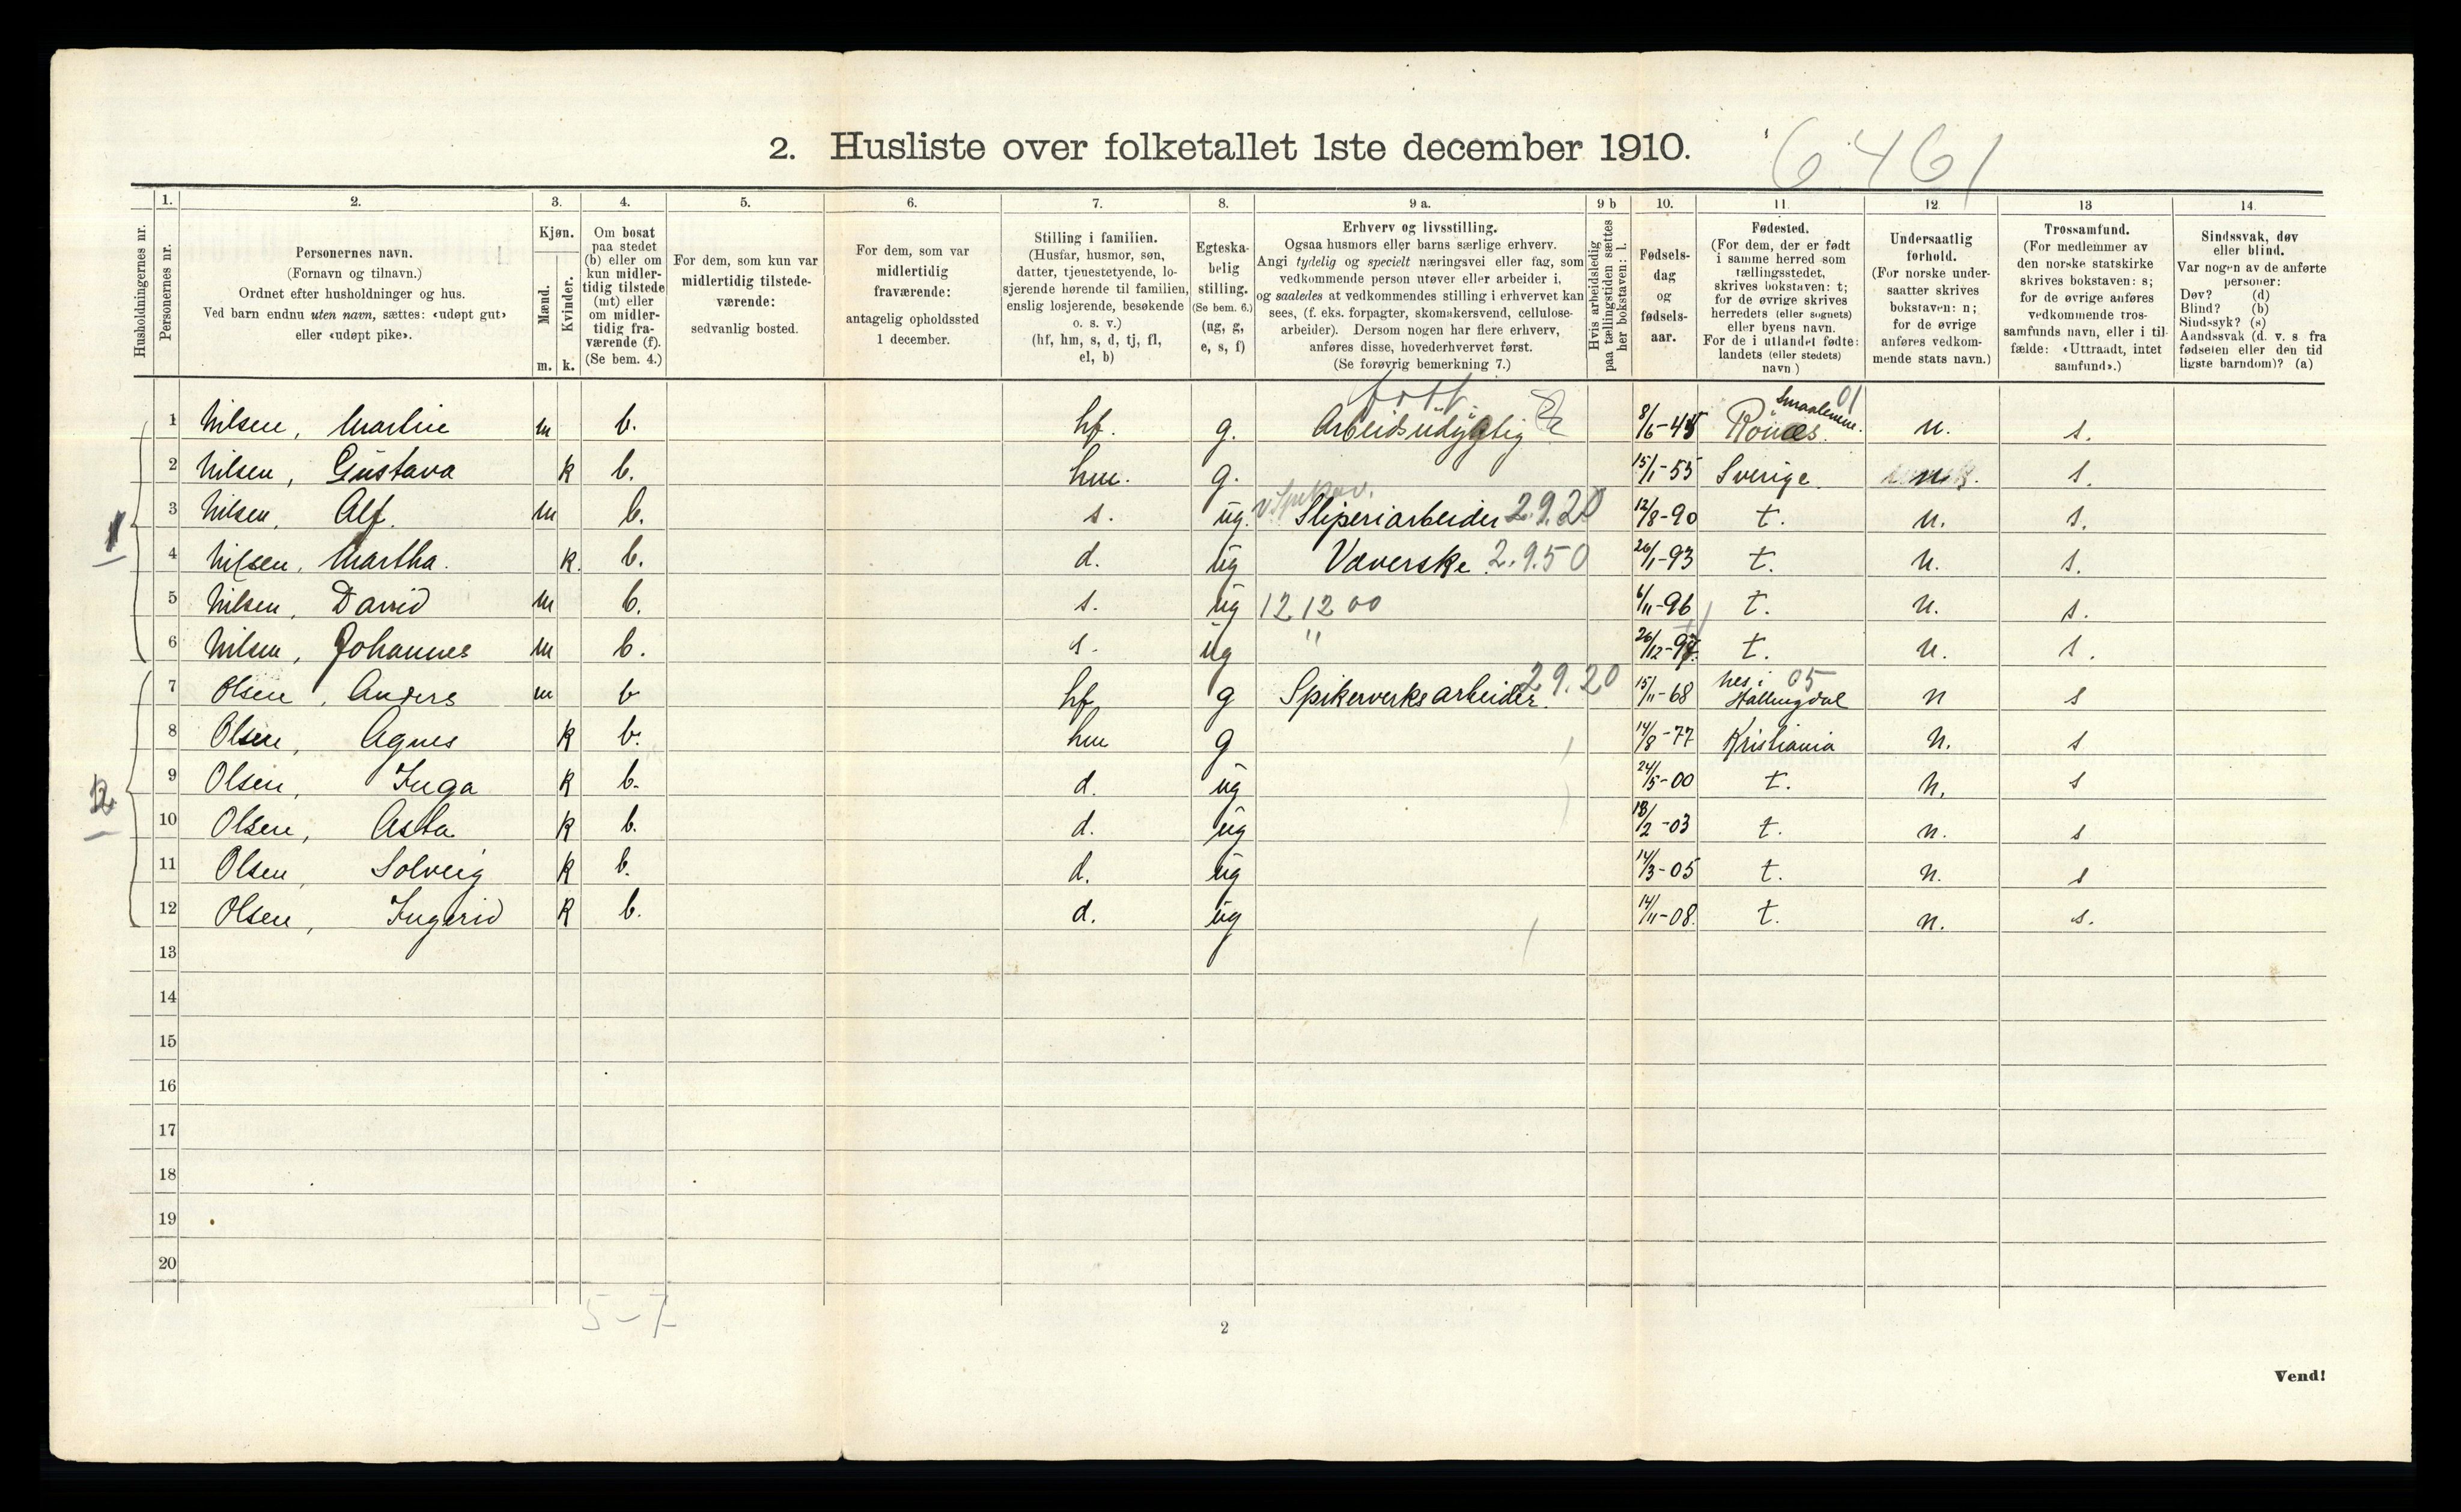 2. Husliste over folketallet 1ste december 1910.
6461
Husholdningernes nr.
1.
Personernes nr.
2.
Personernes navn.
(Fornavn og tilnavn.)
Ordnet efter husholdninger og hus.
Ved barn endnu uten navn, sættes: «udøpt gut»
eller «udøpt pike».
3.
Kjøn.
Mænd.
m.
Kvinder.
k.
4.
Om bosat
paa stedet
(b) eller om
kun midler-
tidig tilstede
(mt) eller
om midler-
tidig fra-
værende (f).
(Se bem. 4.)
5.
For dem, som kun var
midlertidig tilstede-
værende:
sedvanlig bosted.
6.
For dem, som var
midlertidig
fraværende:
antagelig opholdssted
1 december.
7.
Stilling i familien.
(Husfar, husmor, søn,
datter, tjenestetyende, lo-
sjerende hørende til familien,
enslig losjerende, besøkende
o. s. v.)
(hf, hm, s, d, tj, fl,
el, b)
8.
Egteska-
belig
stilling.
(Se bem. 6.)
(ug, g,
e, s, f)
9 a.
Erhverv og livsstilling.
Ogsaa husmors eller barns særlige erhverv.
Angi tydelig og specielt næringsvei eller fag, som
vedkommende person utøver eller arbeider i,
og saaledes at vedkommendes stilling i erhvervet kan
sees, (f. eks. forpagter, skomakersvend, cellulose-
arbeider). Dersom nogen har flere erhverv,
anføres disse, hovederhvervet først.
(Se forøvrig bemerkning 7.)
9 b
Hvis arbeidsledig
paa tællingstiden sættes
her bokstaven: l.
10.
Fødsels-
dag
og
fødsels-
aar.
11.
Fødested.
(For dem, der er født
i samme herred som
tællingsstedet,
skrives bokstaven: t;
for de øvrige skrives
herredets (eller sognets)
eller byens navn.
For de i utlandet fødte:
landets (eller stedets)
navn.)
12.
Undersaatlig
forhold.
(For norske under-
saatter skrives
bokstaven: n;
for de øvrige
anføres vedkom-
mende stats navn.)
13
Trossamfund.
(For medlemmer av
den norske statskirke
skrives bokstaven: s;
for de øvrige anføres
vedkommende tros-
samfunds navn, eller i til-
fælde: «Uttraadt, intet
samfund».)
14.
Sindssvak, døv
eller blind.
Var nogen av de anførte
personer:
Døv? (d)
Blind? (b)
Sindssyk? (s)
Aandssvak (d. v. s fra
fødselen eller den tid
ligste barndom)? (a)
1
1 Nilsen, Martin m b. hf. g. Arbeidsudygtig 8/6-45 Smaalenene. 01 n. s.
2 Nilsen, Gustava k b. hm. g. 15/1-55 Sverige. n. s.
3 Nilsen, Alf. m b. s. ug. Sliperiarbeider 2.9.20 12/8-90 t. n. s.
4 Nilsen, Martha. k. b. d. ug Væverske 2.9.50 26/1-93 t. n. s.
5 Nilsen, David m b. s. ug 12 12 00 6/11-96 t. n. s.
6 Nilsen, Johannes m b. s. ug " 26/12-97. t. n. s.
2
7 Olsen, Anders m b hf g Spikerverksarbeider. 29.20 15/11-68 Nes i Hallingdal 05 n s
8 Olsen, Agnes k b. hm g 14/8-77 Kristiania n. s
9 Olsen, Inga k b. d. ug 24/5-00 t. n. s
10 Olsen, Asta k b. d. ug 18/2-03 t. n. s
11 Olsen, Solveig k b. d. ug 14/3-05 t. n. s
12 Olsen, Ingerid k b. d. ug 14/11-08. t. n. s.
13
14
15
16
17
18
19
20
5-7
2
Vend!